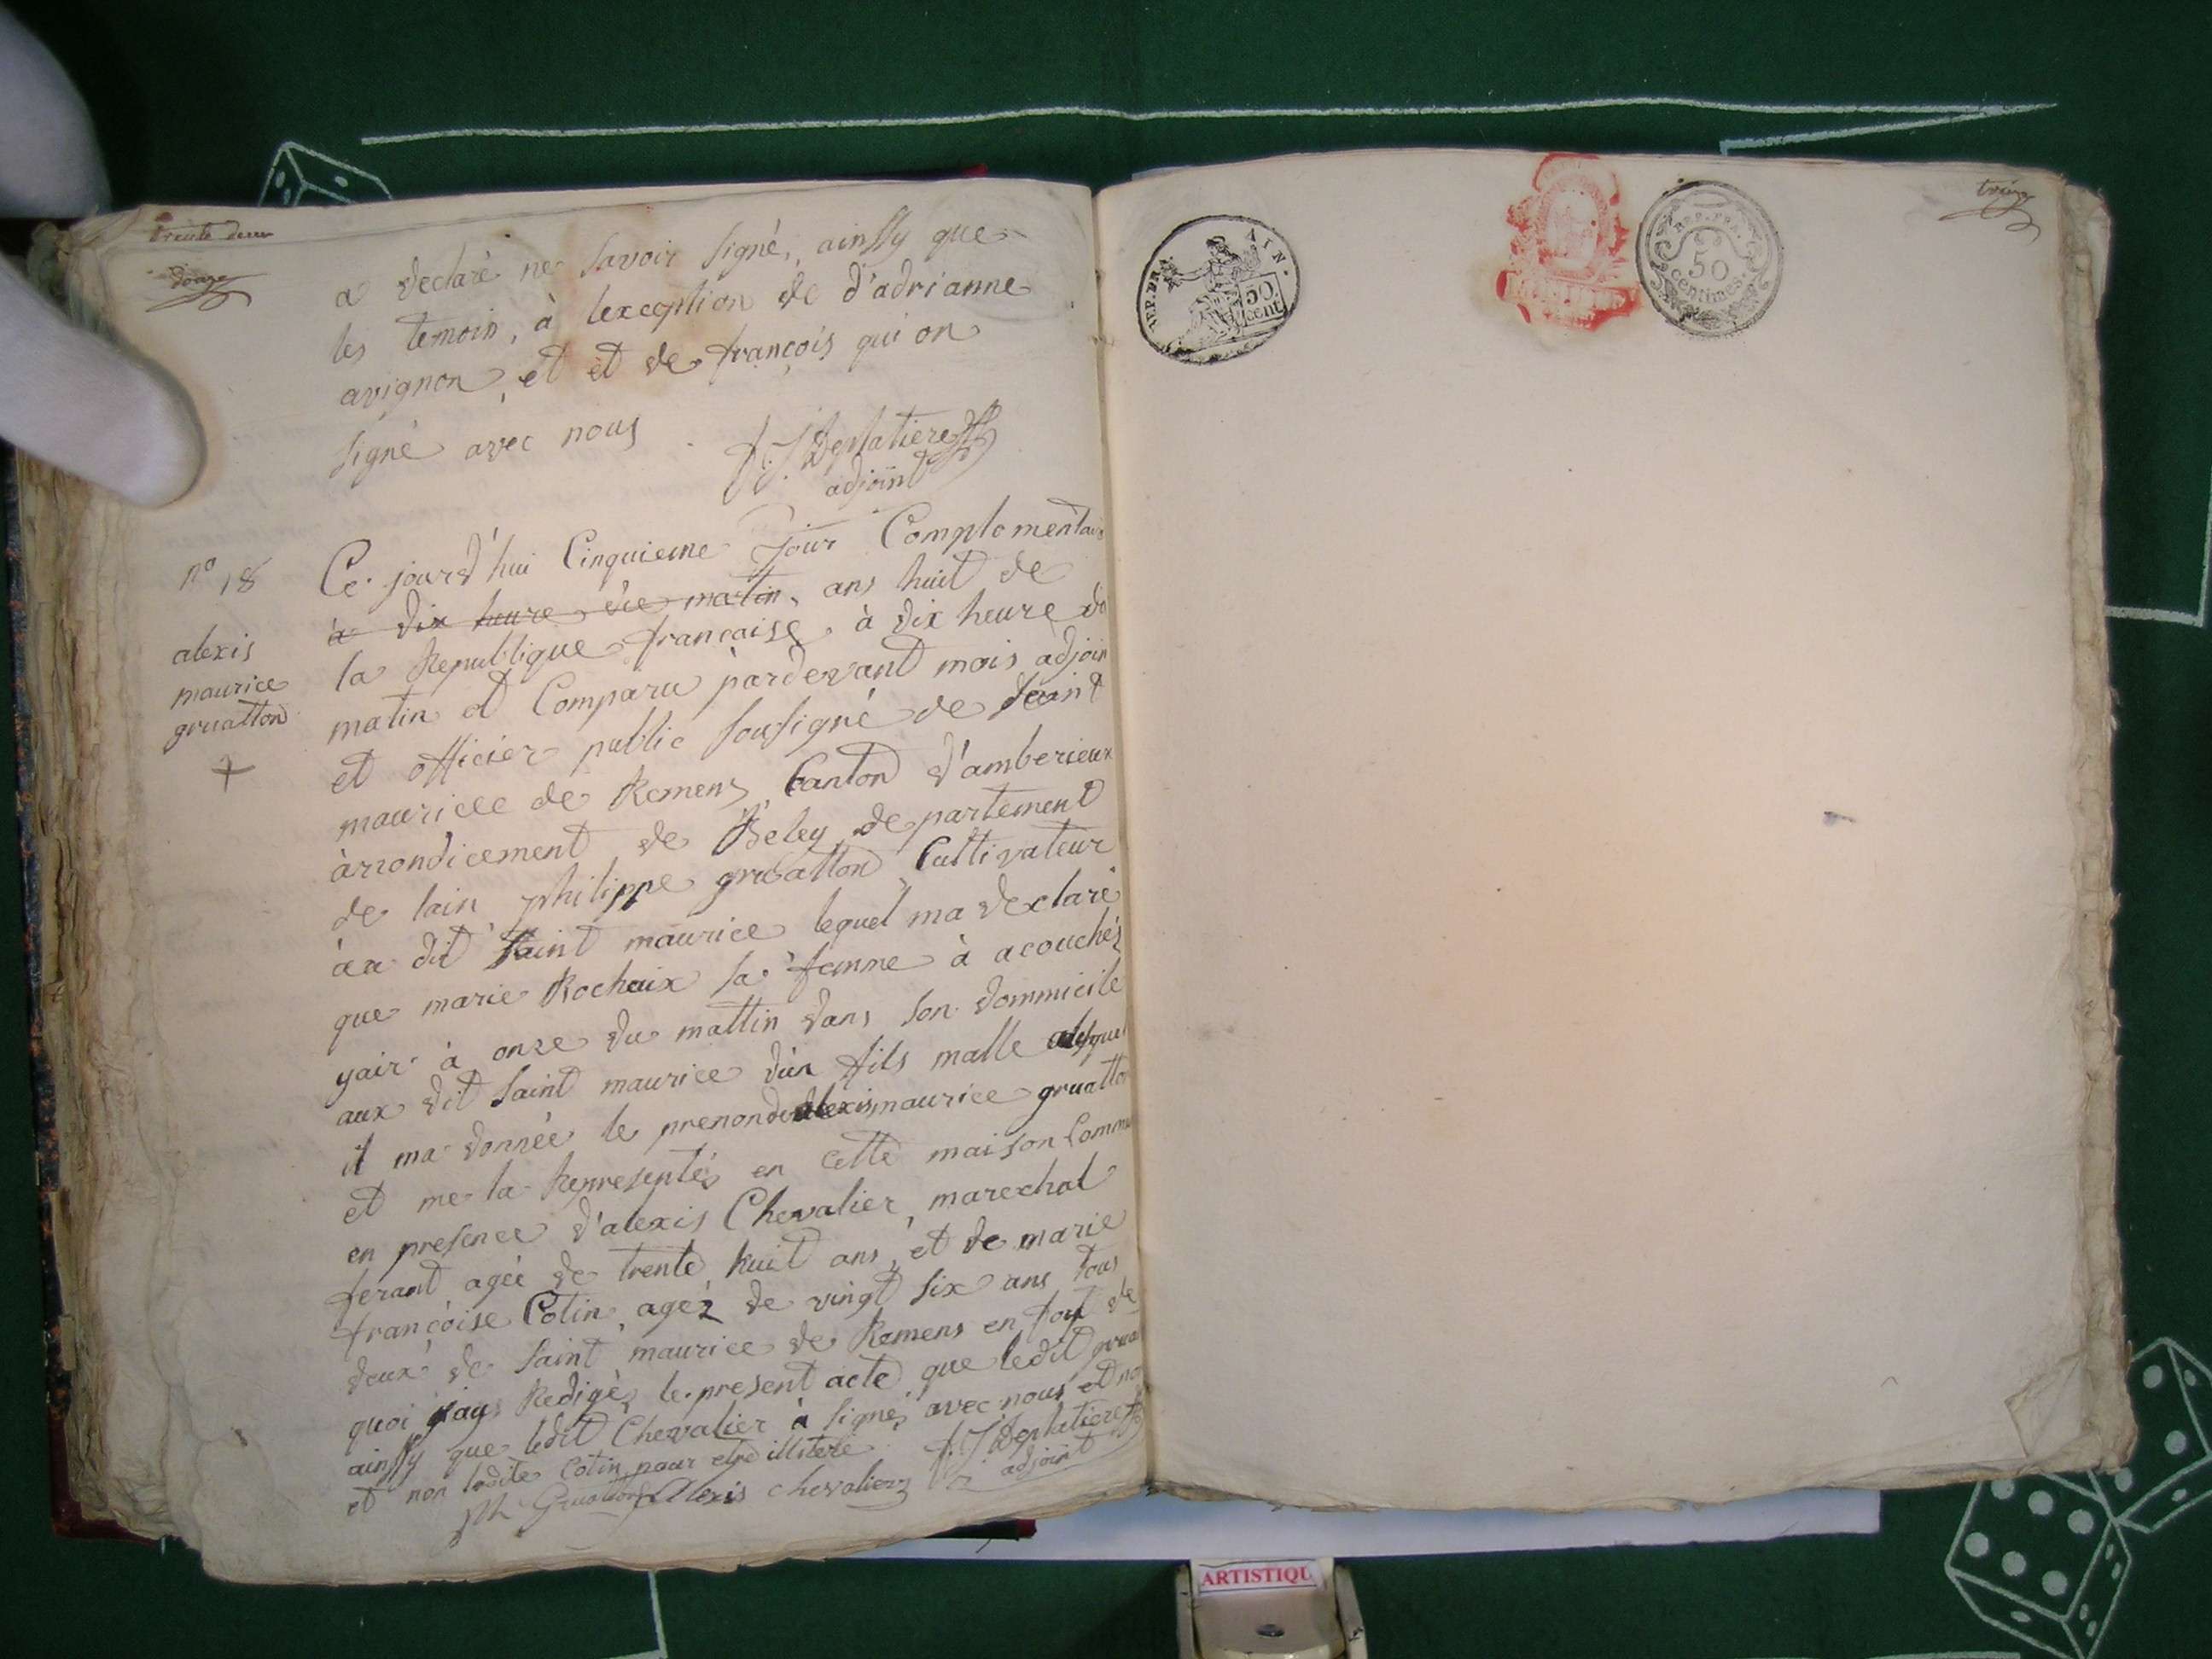 trente deux
douze
a declaré ne savoir signé, ainssy que
les temoin, à lexception de d'adrianne
avignon, et et de françois qui on
signé avec nous
f. J Deplatiere
adjoint
n° 18
alexis
maurice
gruatton
+
Ce jourd'hui Cinquieme Jour Complomentair
à dix heure die matin, ans huit de
la Republique française, à dix heure du
matin et Comparu pardevant mois adjoin
et officier public sousigné de saint
mauricee de Remens, Canton d'amberieux
àrrondicement de Beley departement
de lain philippe gruatton Cultivateur
àu dit saint maurice lequel ma declaré
que marie Rochaix sa femme à acouchéz
yair à onze du mattin dans son dommicile
aux dit saint maurice d'un fils malle alesquel
il ma donnée le prenon de alexis maurice gruatton
et me la Representés en cette maison Commu
en presence d'alexis Chevalier, marechal
ferant ageé de trente huit ans, et de marie
françoise Cotin, agéz de vingt six ans tous
deux de saint maurice de Remens en foy de
quoi jay Redigéz le present acte que ledit grua
ainssy que ledit Chevalier à signéz avec nous et no
et non ladite Cotin pour etre illitere
ph Gruatton alexis chevalier f. J Deplatiere
adjoint
REP. FRA. AIN.
50
cent
REP. FRA.
50
centimes.
treize
ARTISTIQU